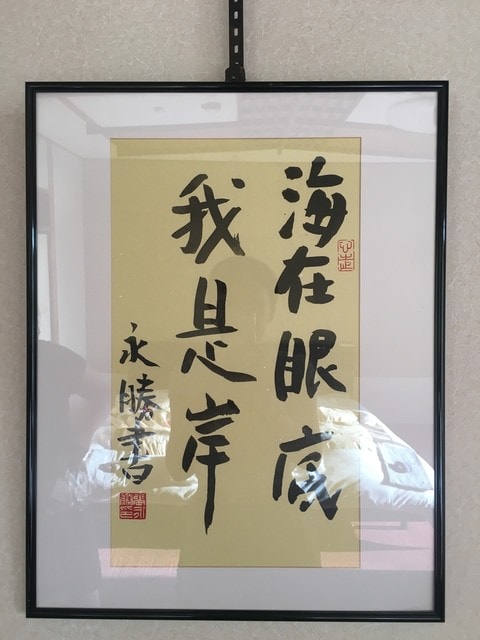 海在眼底
我是岸
永勝書